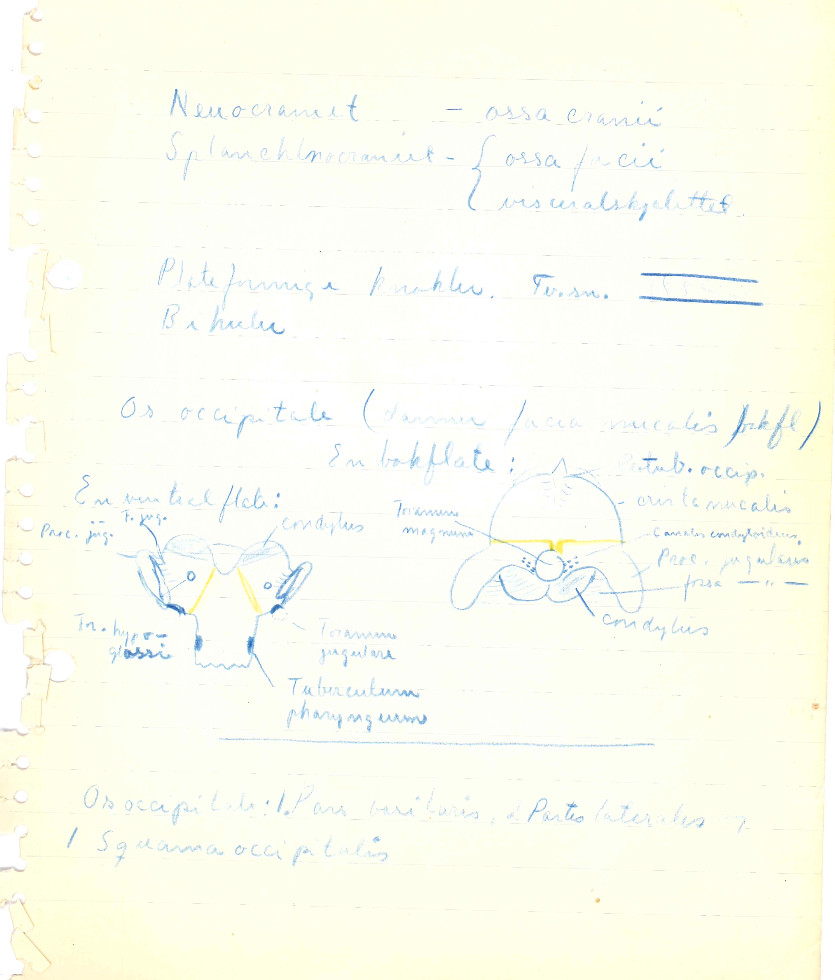 Neurocraniet - ossa cranii
Splanchknocraniet - { ossa facii
visceralskjelettet.
Plateformige knokler. Tv.sn.
Bihuler
Os occipitale ( danner facia nucalis
En bakflate:
Protub. occip.
En ventral flate:
crista nucalis
F. jug.
condylus
Foramen
magnum
Proc. jug.
Canalis condyloideus.
Proc. jugularis
fossa —„—
condylus
For. hypo-
glossi
Foramen
jugulare
Tuberculum
pharyngeum
Os occipitale: 1. Pars basilaris, 2 Partes laterales
1 Squama occipitalis